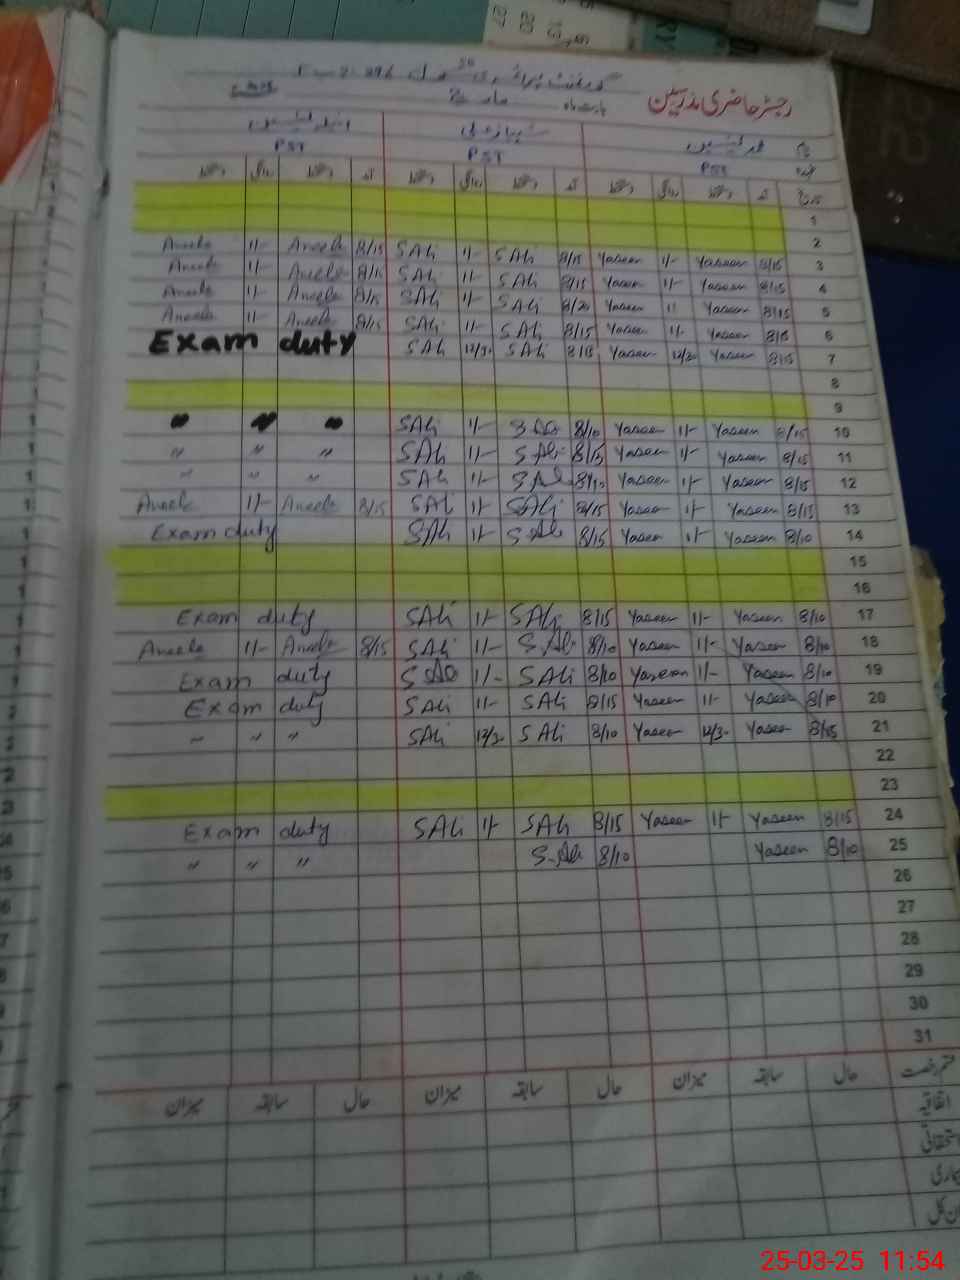 رجسٹر حاضری مدرسین
بابت ماہ مارچ 2025
PST PST PST
تاریخ آمد دستخط روانگی دستخط آمد دستخط روانگی دستخط آمد دستخط روانگی دستخط
1
2
Aneela 1/- Aneela 8/15 SAli 1/- SAli 8/15 Yaseen 1/- Yaseen 8/15 3
Aneela 1/- Aneela 8/15 SAli 1/- SAli 8/15 Yaseen 1/- Yaseen 8/15 4
Aneela 1/- Aneela 8/15 SAli 1/- SAli 8/20 Yaseen 1/- Yaseen 8/15 5
Aneela 1/- Aneela 8/15 SAli 1/- SAli 8/15 Yaseen 1/- Yaseen 8/15 6
Exam duty SAli 12/30 SAli 8/15 Yaseen 12/30 Yaseen 8/15 7
8
9
" " " SAli 1/- SAli 8/10 Yaseen 1/- Yaseen 8/15 10
" " " SAli 1/- SAli 8/15 Yaseen 1/- Yaseen 8/15 11
" " " SAli 1/- SAli 8/10 Yaseen 1/- Yaseen 8/15 12
Aneela 1/- Aneela 8/15 SAli 1/- SAli 8/15 Yaseen 1/- Yaseen 8/15 13
Exam duty SAli 1/- SAli 8/15 Yaseen 1/- Yaseen 8/10 14
15
16
Exam duty SAli 1/- SAli 8/15 Yaseen 1/- Yaseen 8/10 17
Aneela 1/- Aneela 8/15 SAli 1/- S.Ali 8/10 Yaseen 1/- Yaseen 8/10 18
Exam duty SAli 1/- SAli 8/10 Yaseen 1/- Yaseen 8/10 19
Exam duty SAli 1/- SAli 8/15 Yaseen 1/- Yaseen 8/10 20
" " " SAli 12/30 SAli 8/10 Yaseen 12/30 Yaseen 8/15 21
22
23
Exam duty SAli 1/- SAli 8/15 Yaseen 1/- Yaseen 8/15 24
" " " S.Ali 8/10 Yaseen 8/10 25
26
27
28
29
30
31
قسم رخصت حال سابقہ میزان حال سابقہ میزان حال سابقہ میزان
اتفاقیہ
استحقاقی
بیماری
25-03-25 11:54